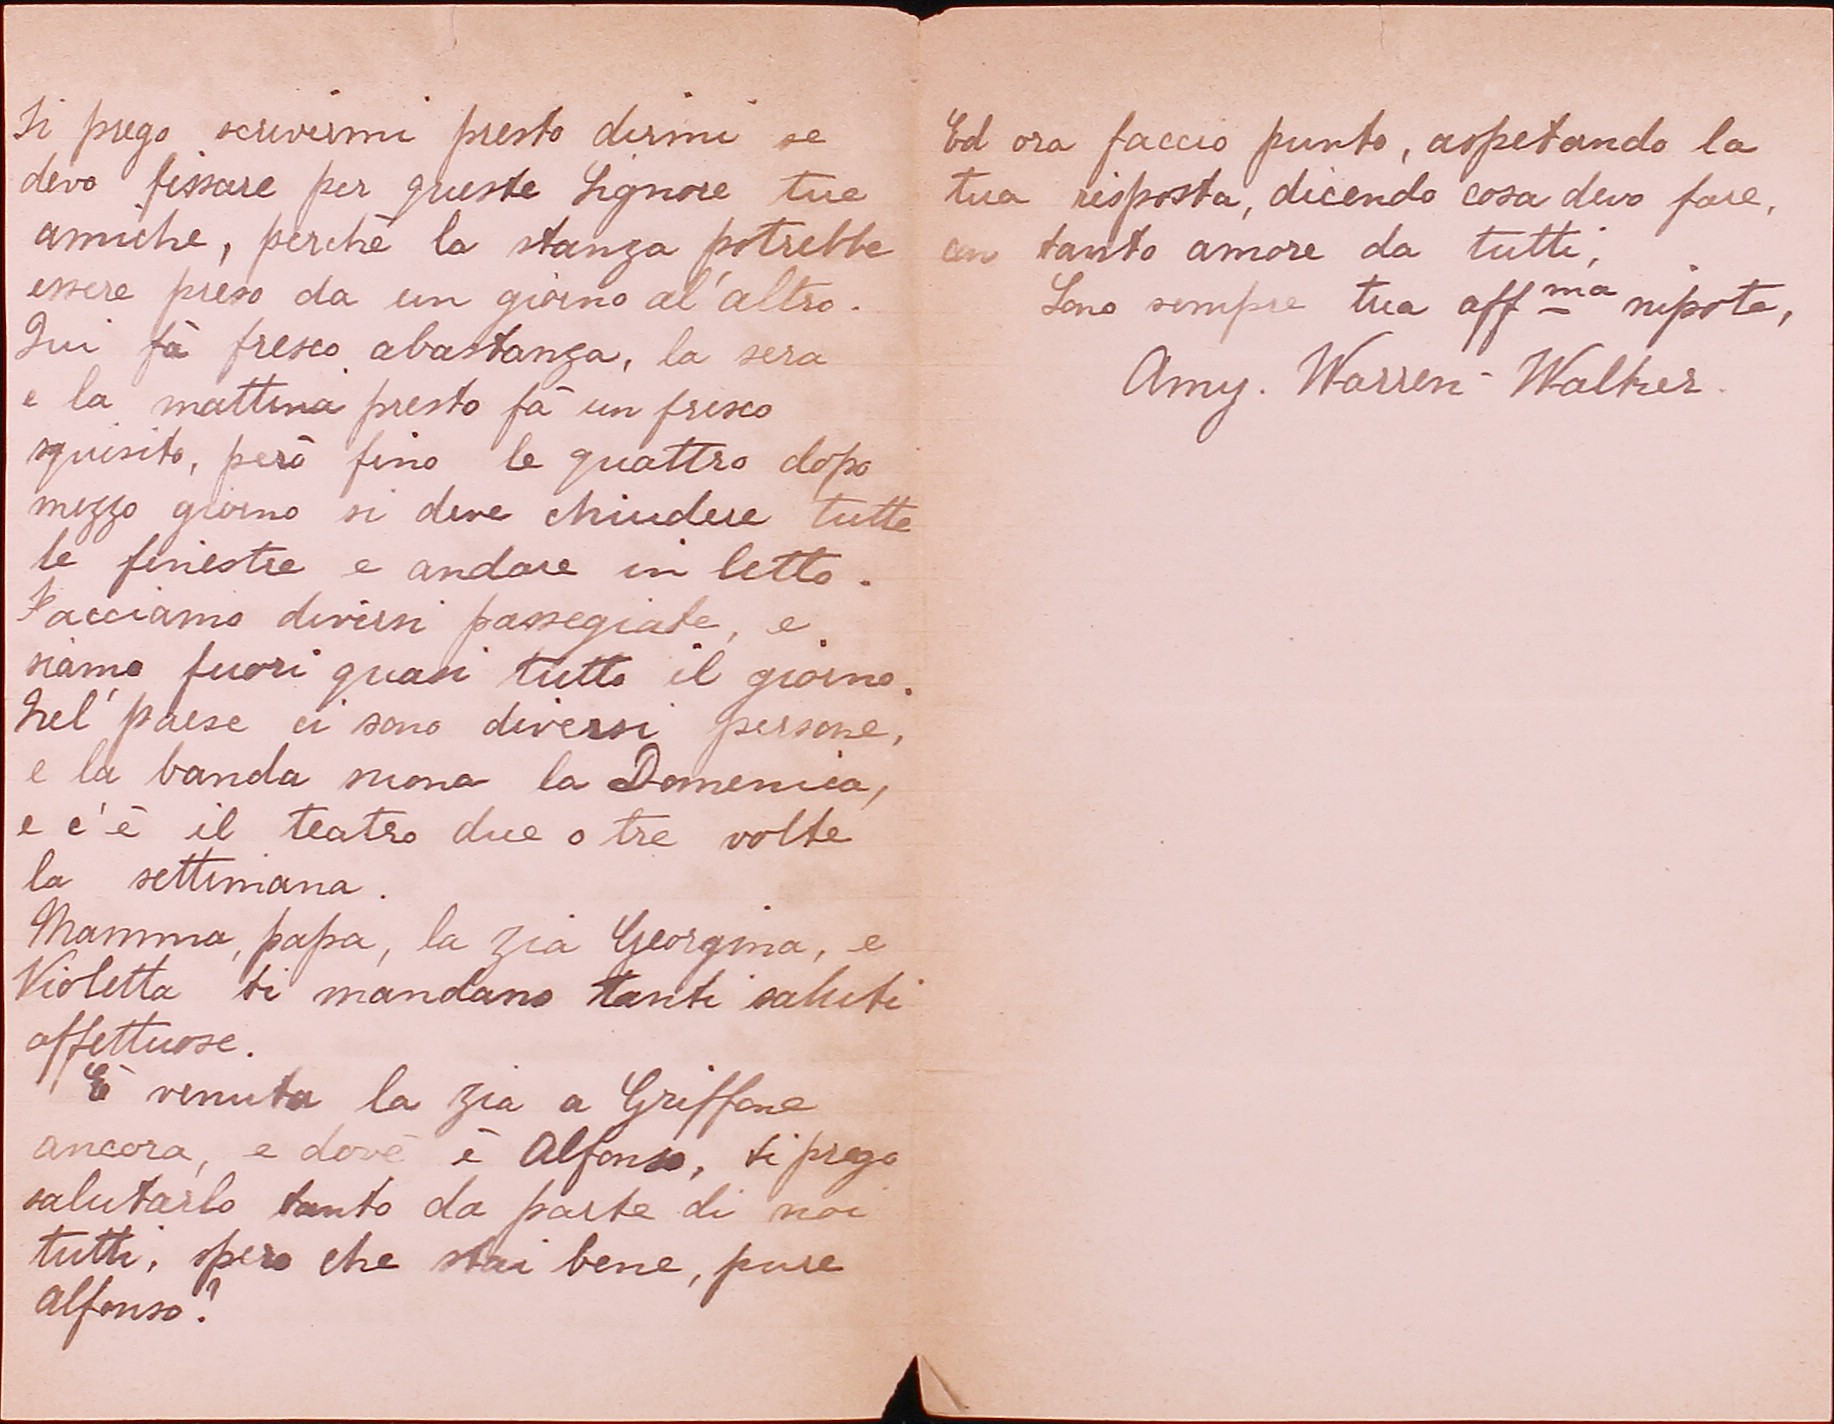 Ti prego scrivermi presto dirmi se
devo fissare per queste Signore tue
amiche, perchè la stanza potrebbe
essere preso da un giorno al' altro.
Qui fà fresco abastanza, la sera
e la mattina presto fà un fresco
squisito, però fino le quattro dopo
mezzo giorno si deve chiudere tutte
le finestre e andare in letto.
Facciamo diversi passegiate, e
siamo fuori quasi tutto il giorno.
Nel' paese ci sono diversi persone,
e la banda suona la Domenica,
e c'è il teatro due o tre volte
la settimana.
Mamma, papa, la zia Georgina, e
Violetta ti mandano tanti saluti
affettuose.
È venuta la zia a Griffone
ancora, e dovè è Alfonso, ti prego
salutarlo tanto da parte di noi
tutti, spero che stai bene, pure
Alfonso?
Ed ora faccio punto, aspetando la
tua risposta, dicendo cosa devo fare,
con tanto amore da tutti,
Sono sempre tua aff ma nipote,
Amy. Warren-Walker.